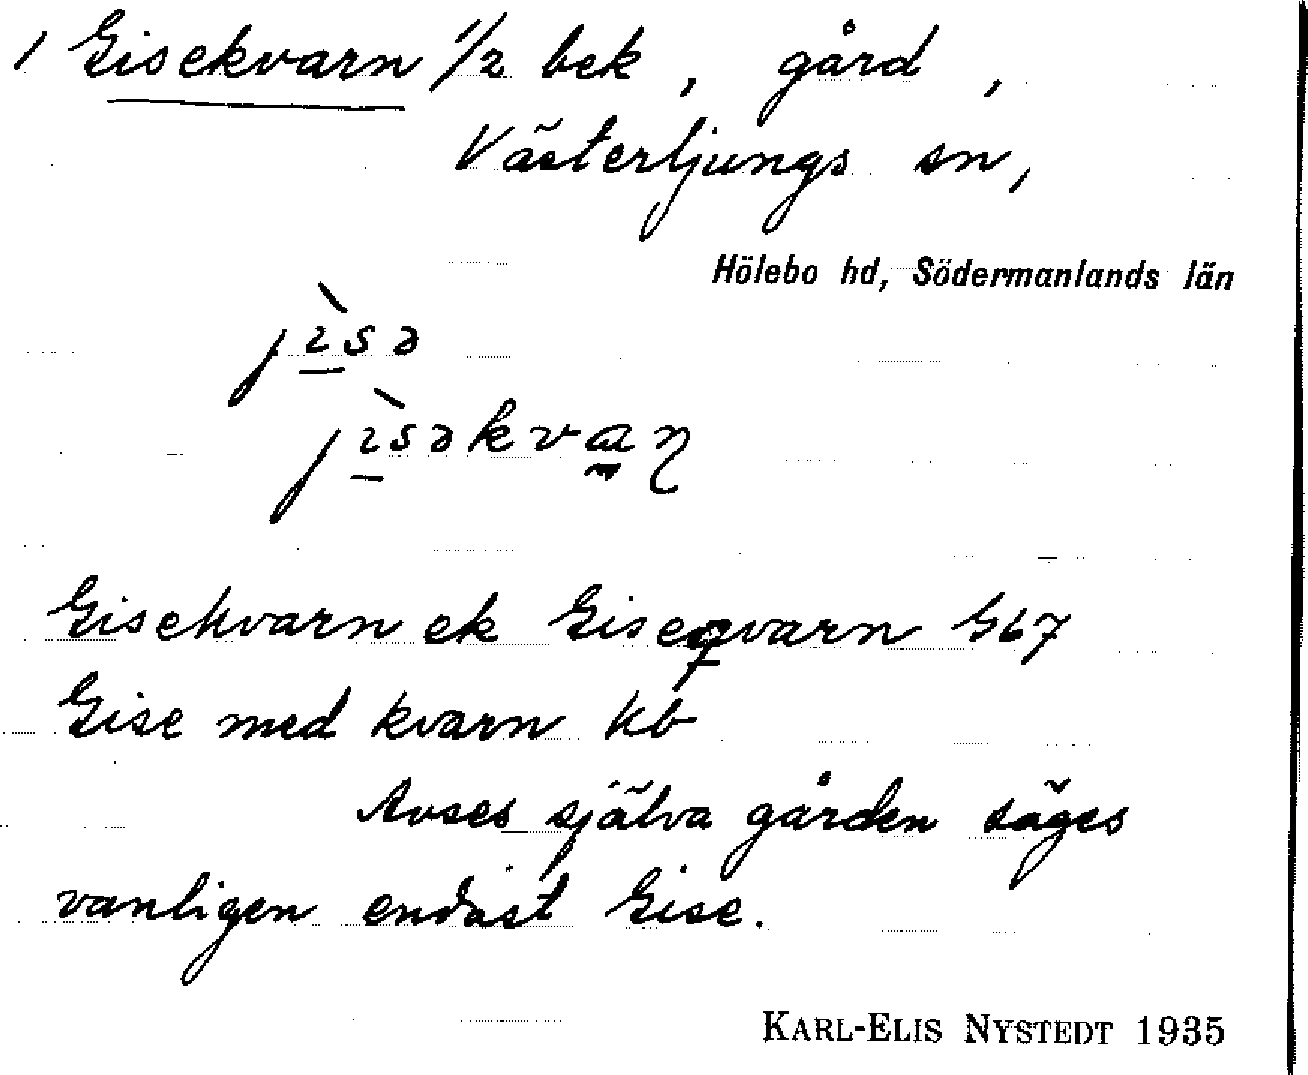 / Gisekvarn 1/2 bek, gård,
Västerljungs sn,
Hölebo hd, Södermanlands län
jɩ̀sə
jɩ̀səkvaɳ
Gisekvarn ek Giseqvarn G67
Gise med kvarn kb
Avses själva gården säges
vanligen endast Gise.
KARL-ELIS NYSTEDT 1935